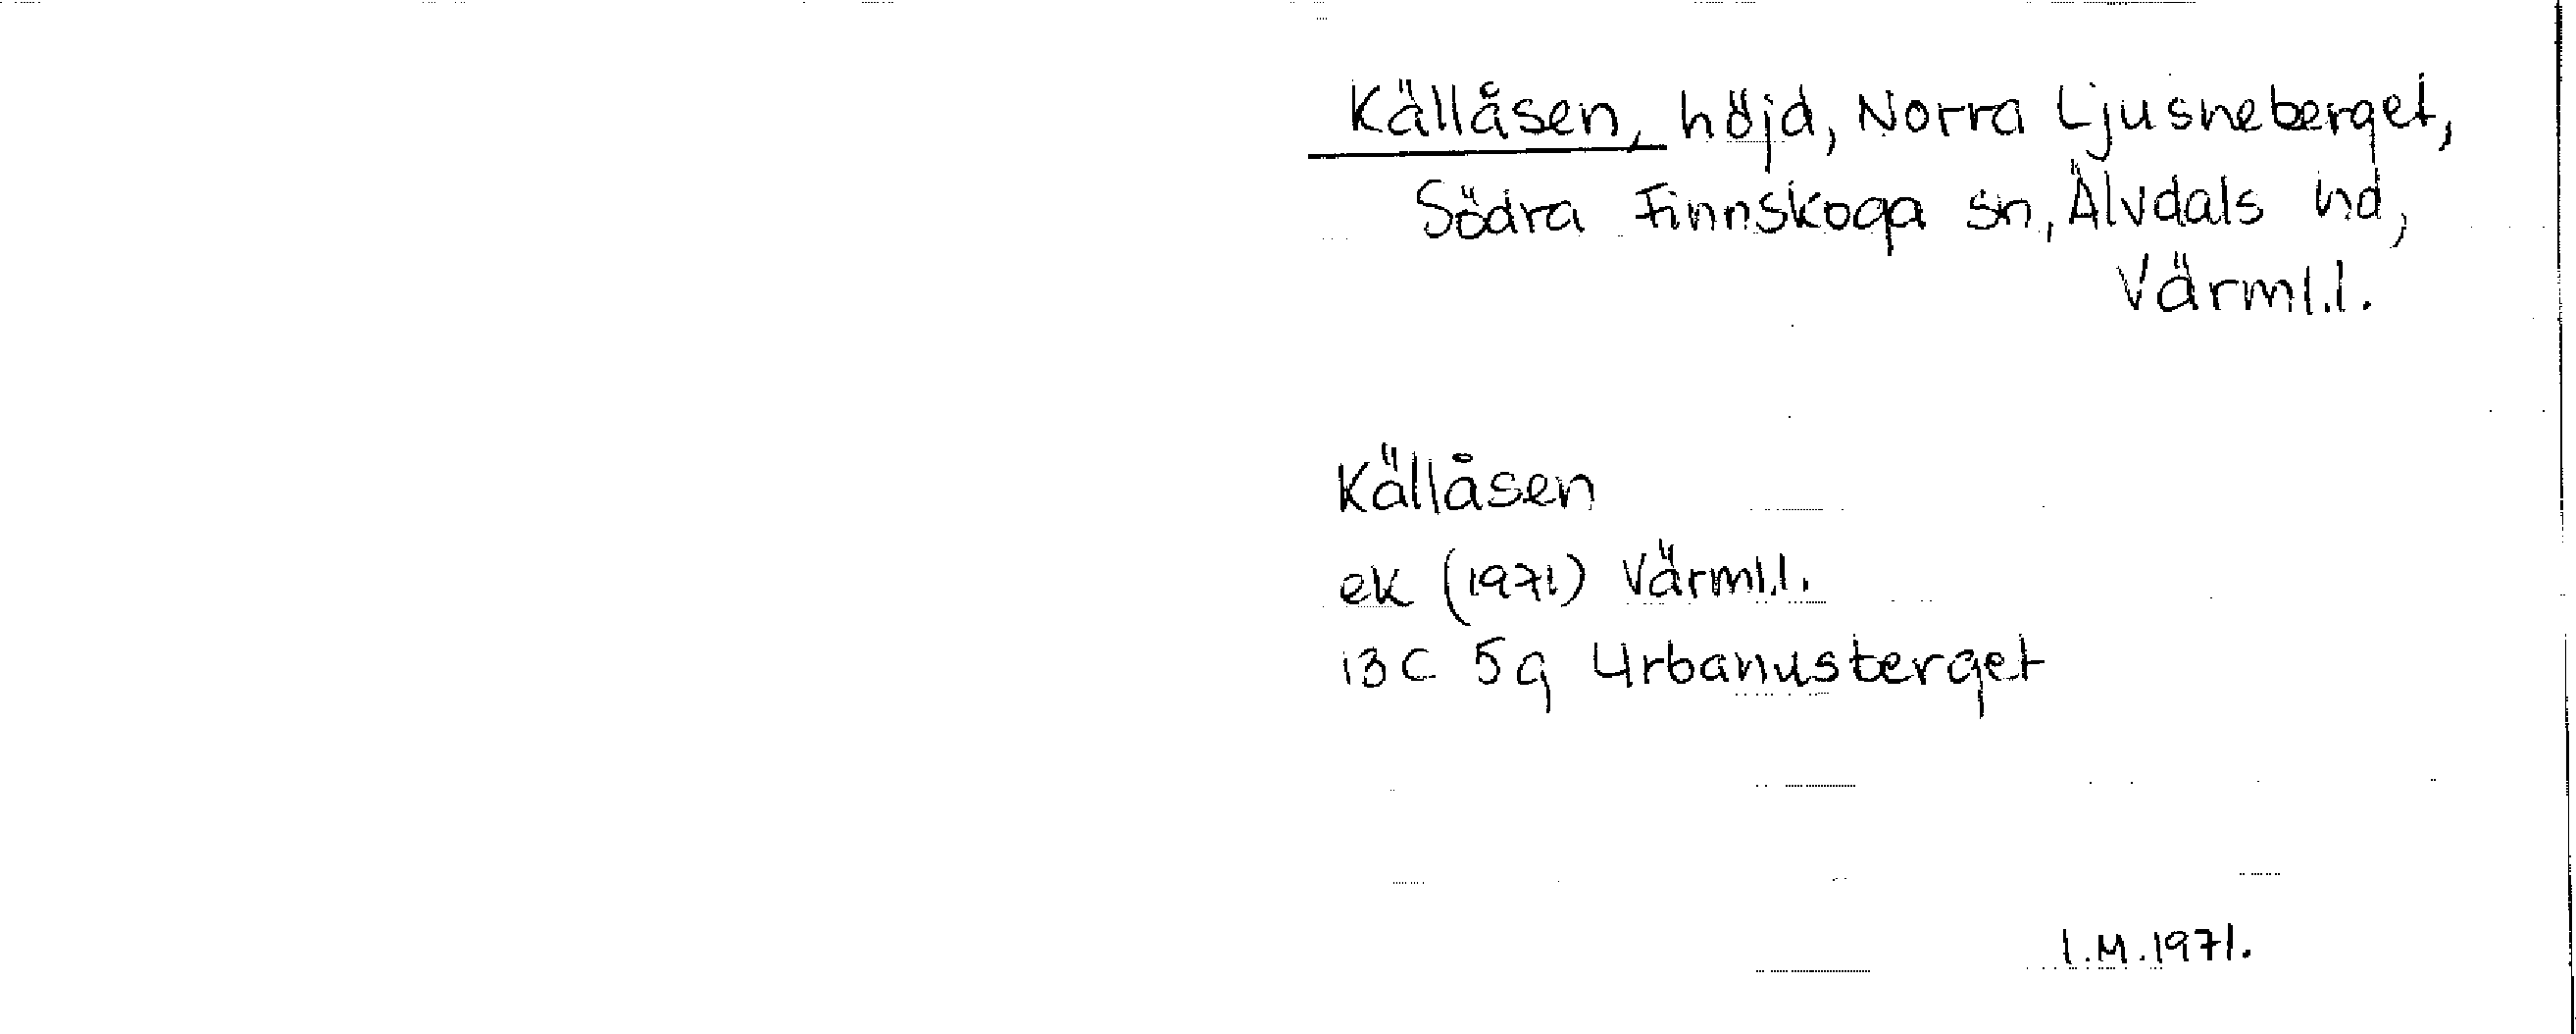 Källåsen, höjd, Norra Ljusneberget,
Södra Finnskoga sn, Älvdals hd,
Värml.l.
Källåsen
ek (1971) Värml.l.
13C 5g Urbanusberget
I.M.1971.